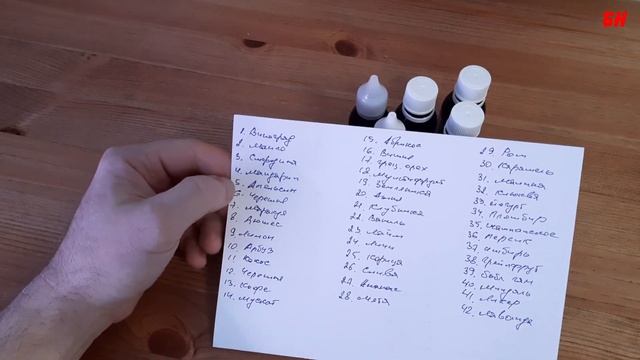 БН
1. Виноград
2. Манго
3. Смородина
4. Мандарин
5. Апельсин
6. Черешня
7. Маракуя
8. Дюшес
9. Лимон
10. Арбуз
11. Кокос
12. Черешня
13. Кофе
14. Мускат
15. Абрикос
16. Вишня
17. грец. орех
18. Мультифрукт
19. Земляника
20. Дыня
21. Клубника
22. Ваниль
23. Лайм
24. Личи
25. Корица
26. Слива
27. Ананас
28. Мята
29. Ром
30. Карамель
31. Малина
32. Клюква
33. Йогурт
34. Пломбир
35.
36. Персик
37. имбирь
38. Грейпфрут
39. Бабл гам
40. Миндаль
41. Ликёр
42. Лаванда